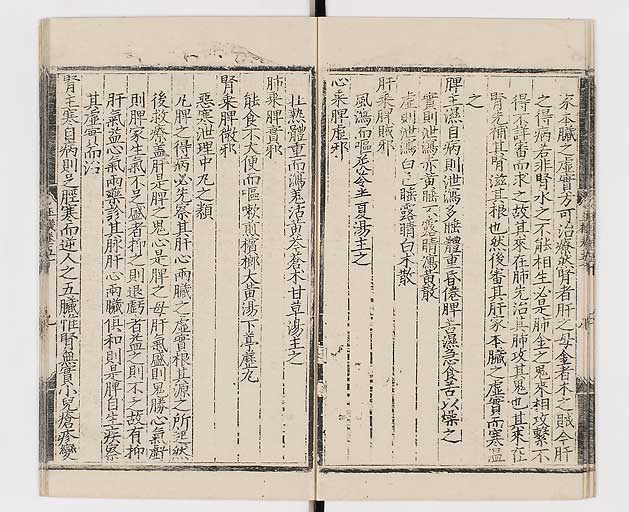 家本臓之虛實方可治療然腎者肝之母金者木之賊今肝
之得病若非腎水之不能相生必是肺金之鬼來相攻繫不
得不詳審而求之故其來在肺先治其肺攻其鬼也其來在
腎先補其腎滋其根也然後審其肝家本臓之虛實而寒温
之
脾主濕自病則泄瀉多睡體重昏倦脾苦濕急食苦以燥之
實則泄瀉赤黃睡不露睛瀉黃散
虛則泄瀉白色睡露睛白术散
肝乘脾賊邪
風瀉而嘔茯苓半夏湯主之
心乘脾虛邪
壯熱體重而瀉羌活黃芩蒼术甘草湯主之
肺乘脾實邪
能食不大便而嘔嗽煎檳榔大黃湯下葶藶丸
腎乘脾微邪
惡寒泄理中丸之類
凡脾之得病必先察其肝心兩臓之虛實根其源之所起然
後救療盖肝是脾之鬼心是脾之母肝氣盛則鬼勝心氣虧
則脾家生氣不足盛者抑之則退虧者益之則不之故有抑
肝氣益心氣兩藥診其脉肝心兩臓俱和則是脾自生疾察
其虛實而治
腎主寒自病則足脛寒而逆人之五臓惟腎無實小兒瘡疹變